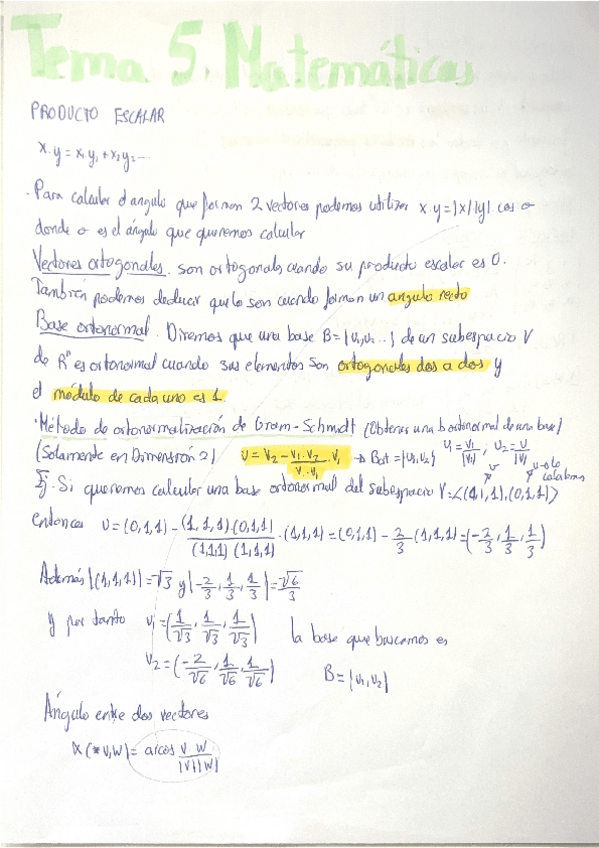 Tema 5. Matemáticas
PRODUCTO ESCALAR
x·y = x₁y₁ + x₂y₂...
·Para calcular el angulo que forman 2 vectores podemos utilizar x·y = |x||y| cos σ
donde σ es el ángulo que queremos calcular
Vectores ortogonales. son ortogonales cuando su producto escalar es 0.
También podemos deducir que lo son cuando forman un angulo recto
Base ortonormal. Diremos que una base B={u₁,u₂...} de un subespacio V
de Rⁿ es ortonormal cuando sus elementos son ortogonales dos a dos y
el módulo de cada uno es 1.
·Método de ortonormalización de Gram-Schmidt (Obtener una b ortonormal de una base)
(Solamente en Dimensión 2) U = V₂ - V₁·V₂ / V₁·V₁ · V₁ → Bort = {U₁,U₂} U₁ = V₁/|V₁| ; U₂ = U/|U|
Ej. Si queremos calcular una base ortonormal del subespacio V=<(1,1,1),(0,1,1)>
entonces U = (0,1,1) - (1,1,1)·(0,1,1) / (1,1,1)·(1,1,1) · (1,1,1) = (0,1,1) - 2/3 · (1,1,1) = (-2/3, 1/3, 1/3)
Además |(1,1,1)| = √3 y |-2/3, 1/3, 1/3| = √6/3
y por tanto U₁ = (1/√3, 1/√3, 1/√3) la base que buscamos es
V₂ = (-2/√6, 1/√6, 1/√6) B = {U₁,U₂}
Ángulo entre dos vectores
∢(*V,W) = arcos V·W / |V||W|